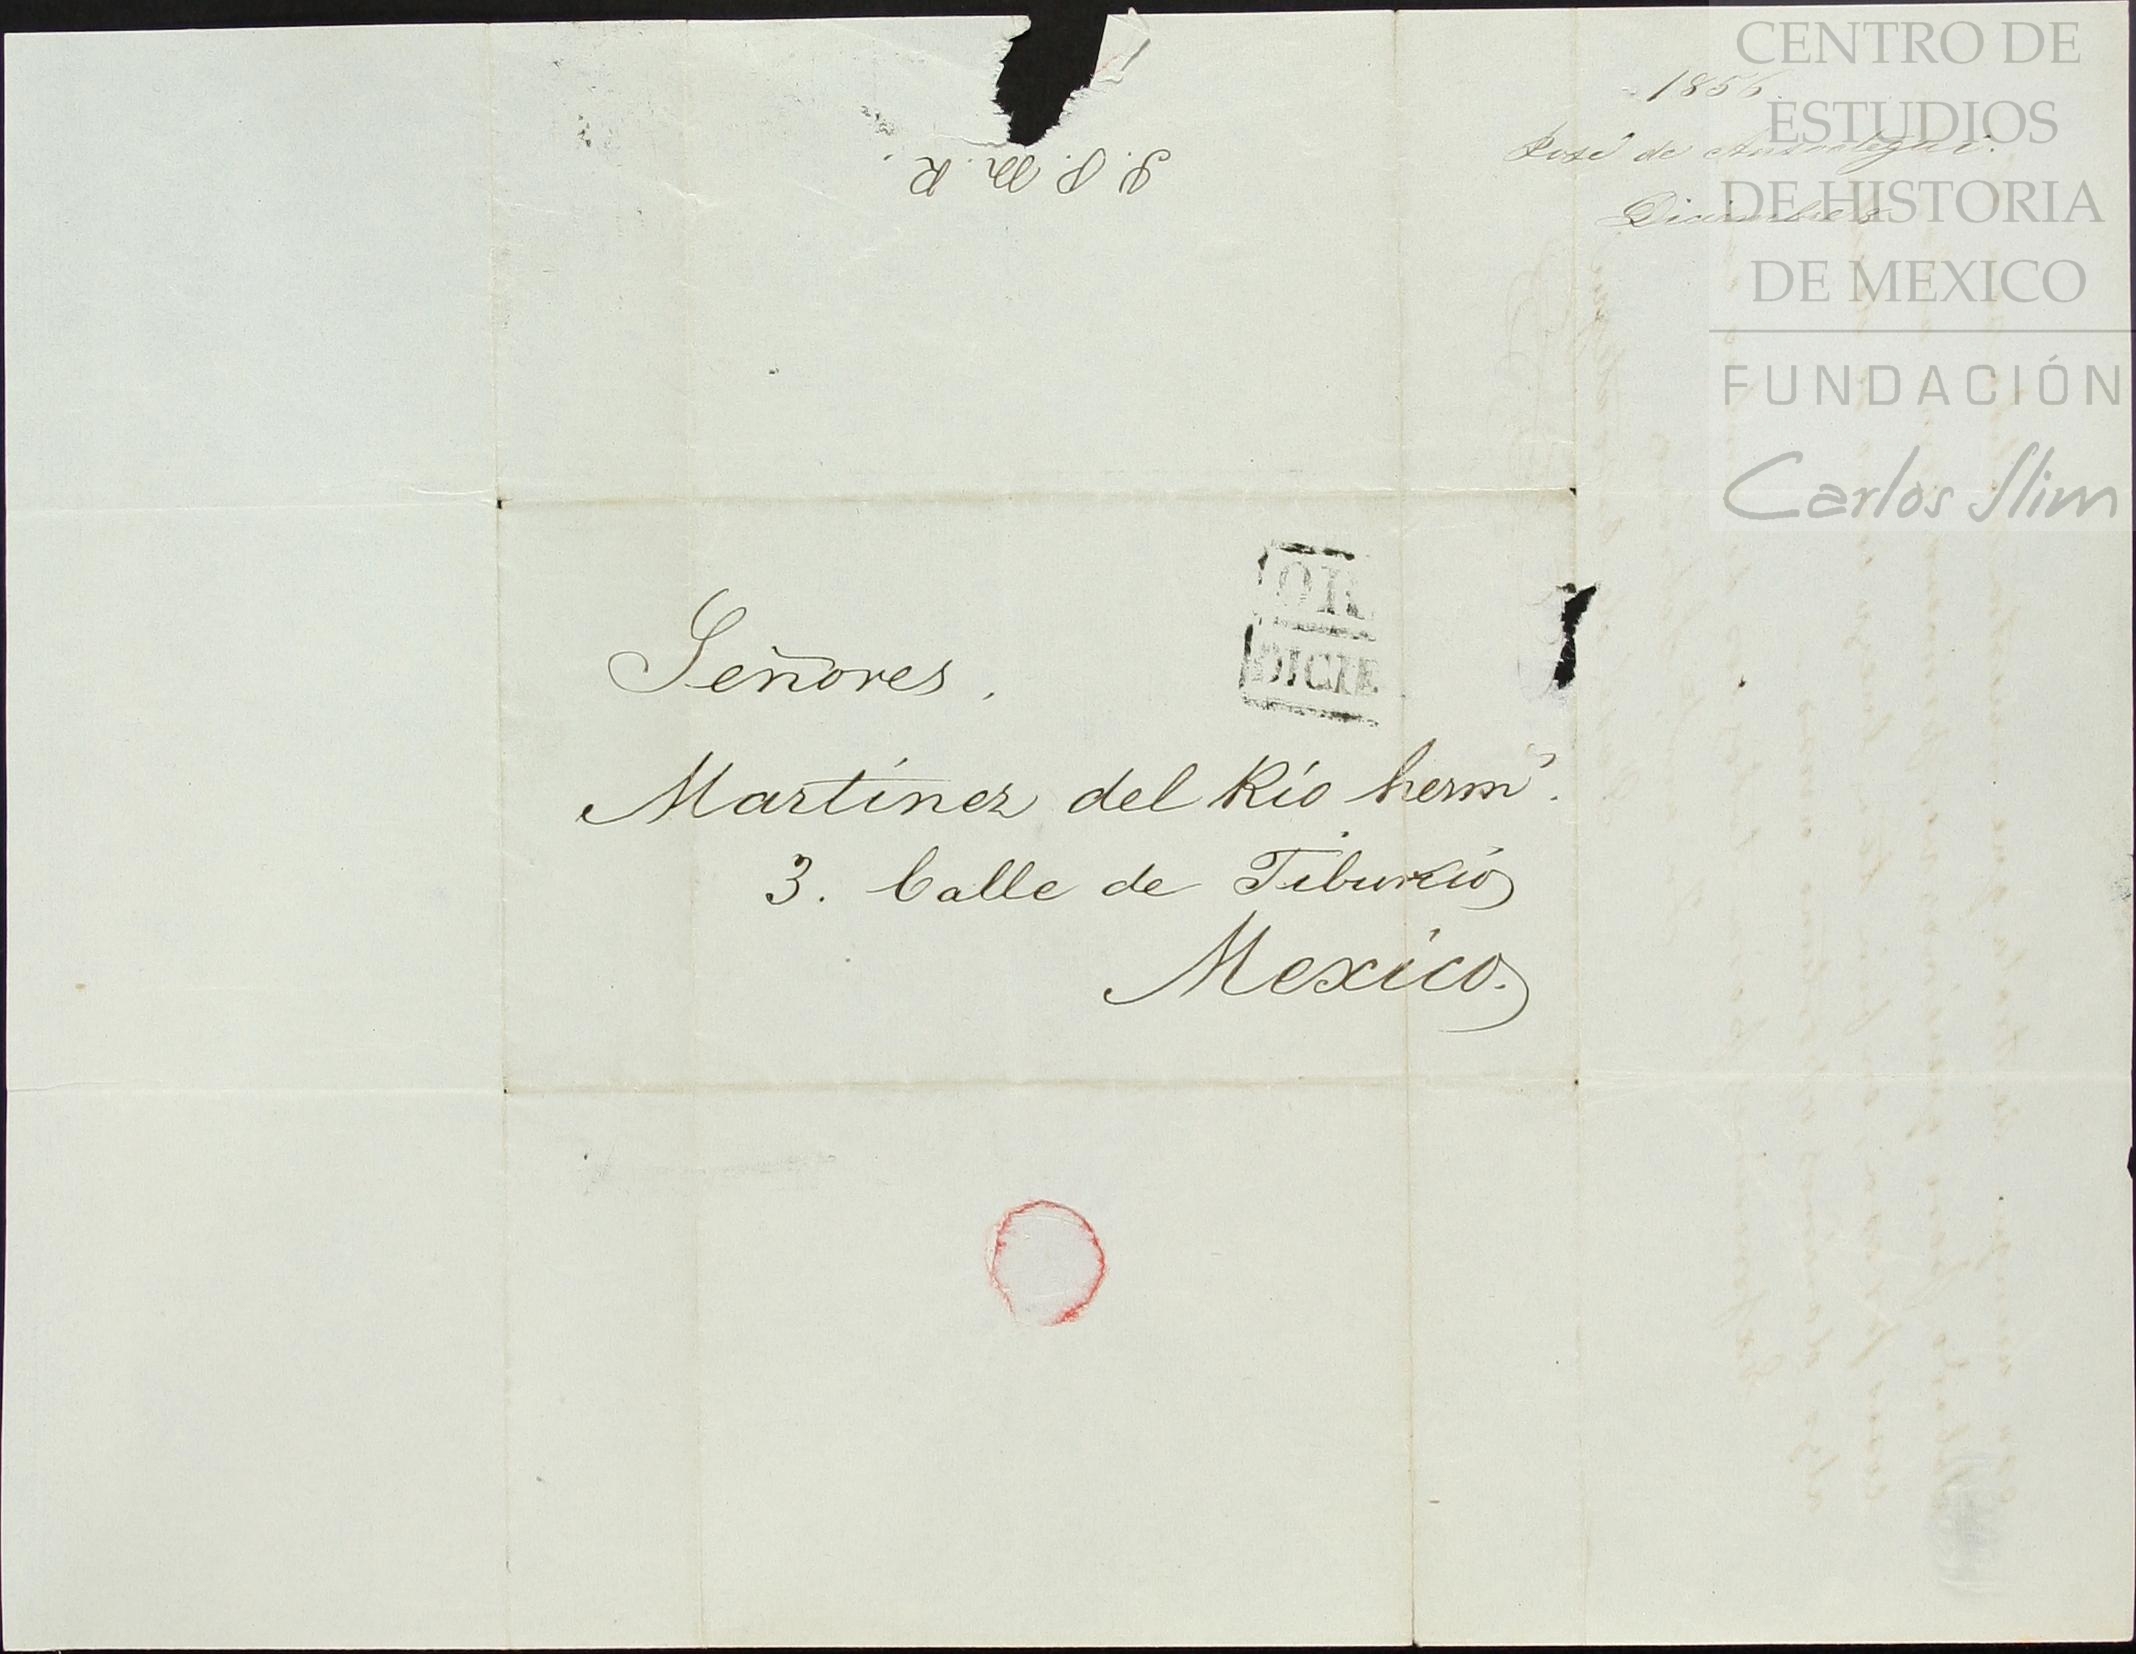 1856.
José de Ansoategui.
Diciembre 8
J. P. M. R.
OR
DICIE
Señores.
Martínez del Río hermˢ.
3. Calle de Tiburcio
Mexico.
CENTRO DE
ESTUDIOS
DE HISTORIA
DE MEXICO
FUNDACIÓN
Carlos Slim